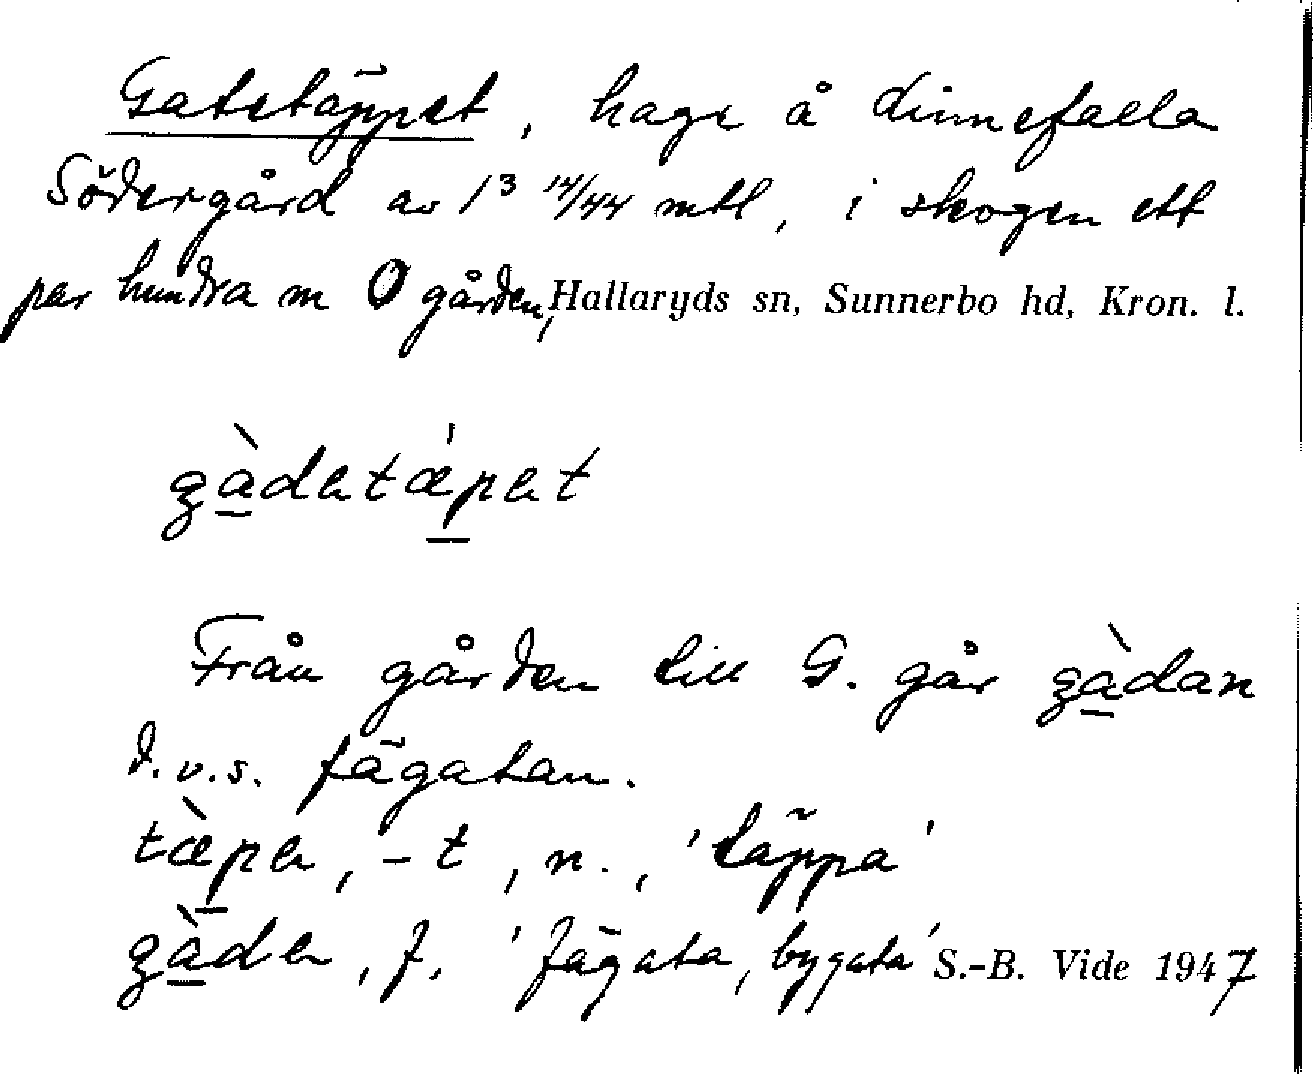 Gatetäppet, hage å Linnefälla
Södergård av 1³ 14/44 mtl, i skogen ett
par hundra m O gården, Hallaryds sn, Sunnerbo hd, Kron. l.
gàdetæ̀pet
Från gården till G. går gàdan
d.v.s. fägatan.
tæ̀pe, -t, n., 'täppa'
gàde, f. 'fägata, bygata' S.-B. Vide 1947